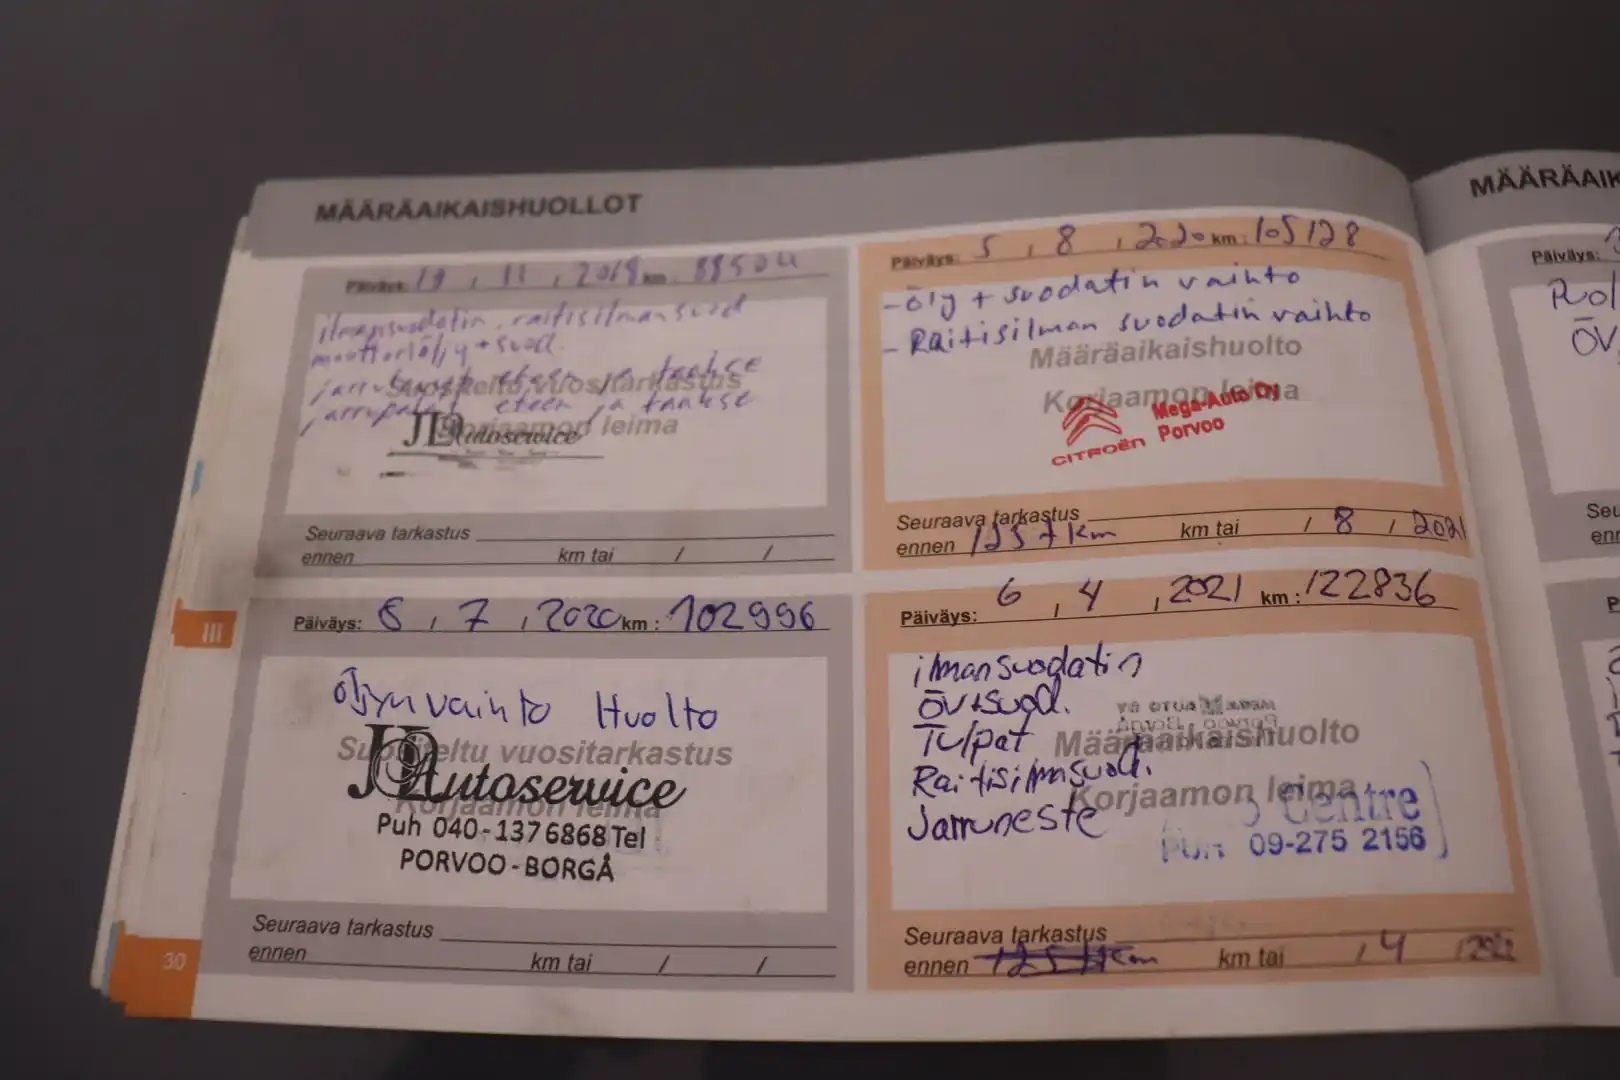 MÄÄRÄAIKAISHUOLLOT
Päiväys: 19 , 11 , 2019 km :
ilmansuodatin, raitisilmansuod
moottoriöljy + suod.
eteen ja taakse
jarrupalat eteen ja taakse
Suositeltu vuositarkastus
Korjaamon leima
Autoservice
Seuraava tarkastus
ennen km tai / /
Päiväys: 5 , 8 , 2020 km : 105128
- öljy + suodatin vaihto
- Raitisilman suodatin vaihto
Määräaikaishuolto
Korjaamon leima
Mega-Auto Oy
CITROËN Porvoo
Seuraava tarkastus
ennen 125 tkm km tai / 8 / 2021
Päiväys: 6 , 7 , 2020 km : 102996
öljynvaihto Huolto
Suositeltu vuositarkastus
Autoservice
Korjaamon leima
Puh 040-1376868 Tel
PORVOO-BORGÅ
Seuraava tarkastus
ennen km tai / /
Päiväys: 6 , 4 , 2021 km : 122836
ilmansuodatin
ÖV+suod.
Tulpat
Määräaikaishuolto
Raitisilmasuod.
Korjaamon leima
Jarruneste
Centre
Puh 09-275 2156
Seuraava tarkastus
ennen km tai / 4 /
III
30
MÄÄRÄAIK
Päiväys:
ÖV
Seu
enn
P